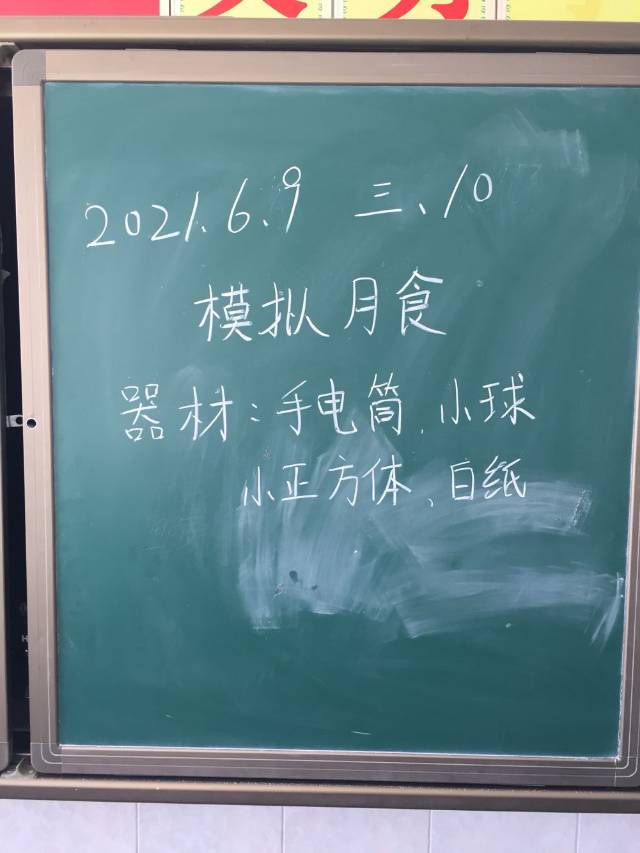 2021.6.9 三、10
模拟月食
器材：手电筒、小球
小正方体、白纸